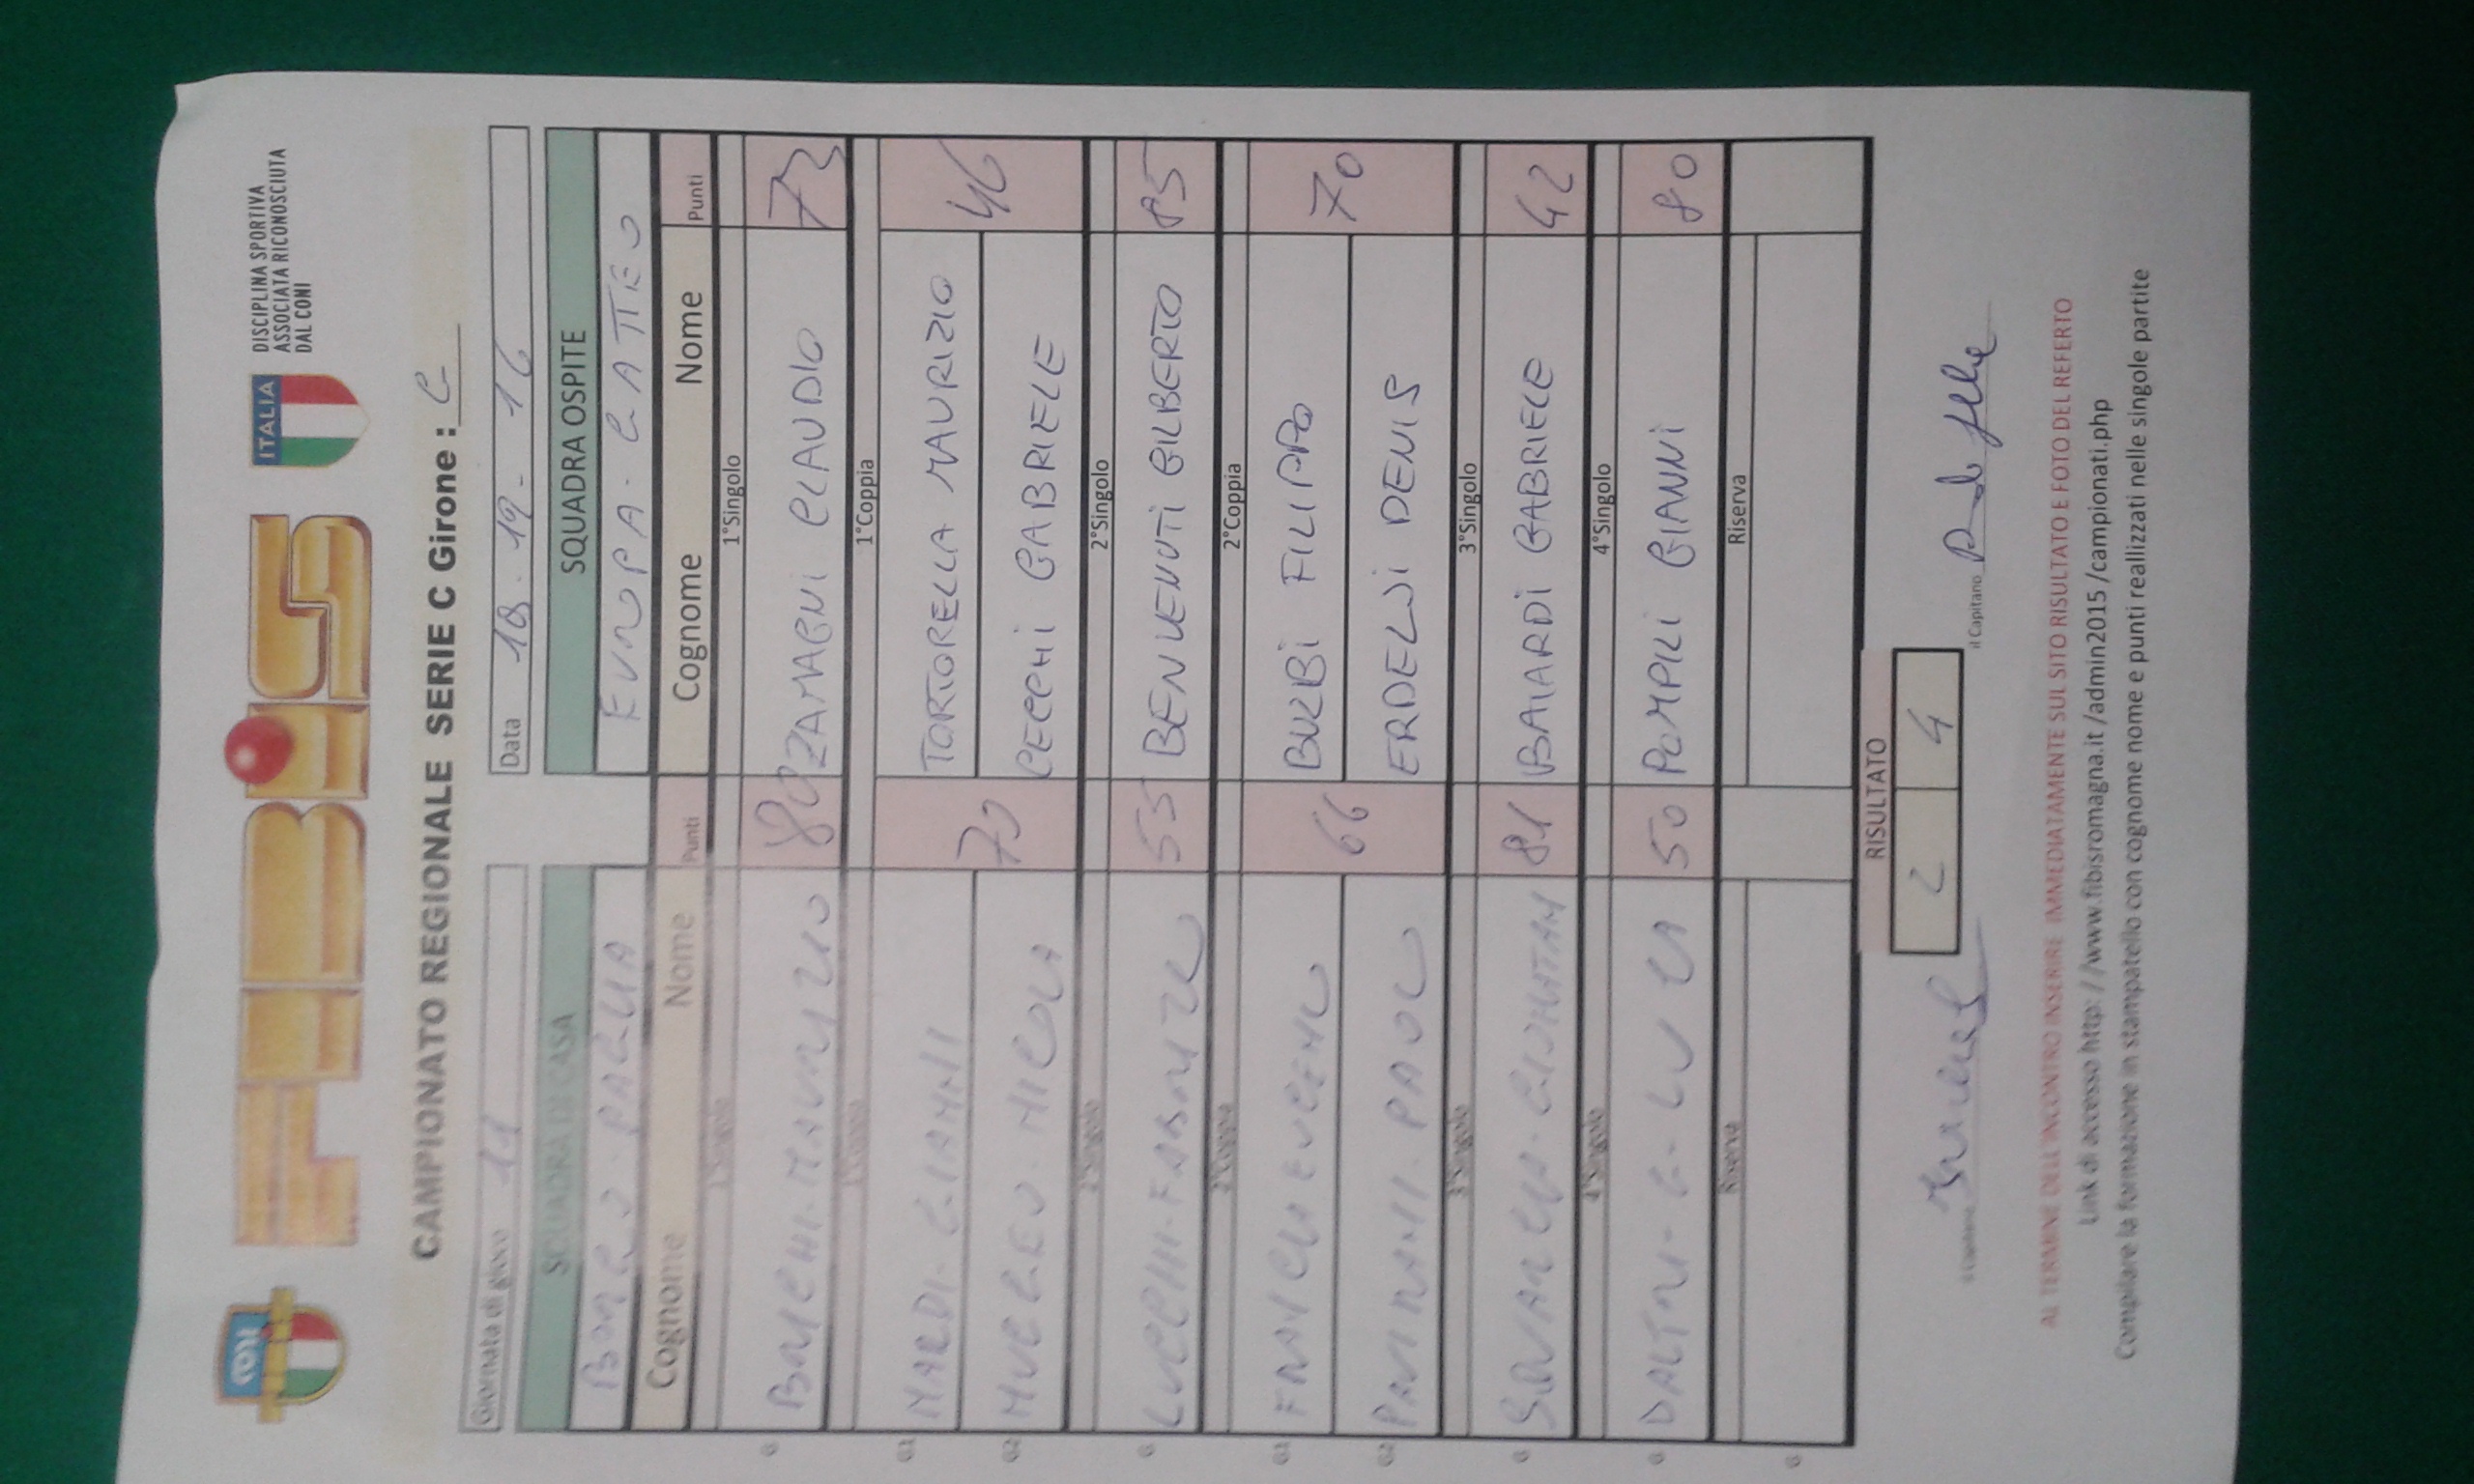 CONI
FIBiS
ITALIA
DISCIPLINA SPORTIVA
ASSOCIATA RICONOSCIUTA
DAL CONI
CAMPIONATO REGIONALE SERIE C Girone : C
Giornata di gioco 11 Data 18-19-16
SQUADRA DI CASA SQUADRA OSPITE
EUROPA - GATTEO
Cognome Nome Punti Cognome Nome Punti
1°Singolo 1°Singolo
MAURIZIO 80 ZAMAGNI CLAUDIO 73
1°Coppia 1°Coppia
G1 NALDI - GIANNI TORTORELLA MAURIZIO
70 46
G2 NICOLA CECCHI GABRIELE
2°Singolo 2°Singolo
LUCCHI - FABRIZIO 55 BENVENUTI GILBERTO 85
2°Coppia 2°Coppia
G1 EUGENIO BULBI FILIPPO
66 70
G2 PAOLO ERDELJI DENIS
3°Singolo 3°Singolo
GIONATAN 81 BAIARDI GABRIELE 42
4°Singolo 4°Singolo
DALTRI - G - LUCA 50 POMPILI GIANNI 80
Riserva Riserva
RISULTATO
2 4
il Capitano il Capitano
AL TERMINE DELL'INCONTRO INSERIRE IMMEDIATAMENTE SUL SITO RISULTATO E FOTO DEL REFERTO
Link di accesso http: / /www.fibisromagna.it /admin2015 /campionati.php
Compilare la formazione in stampatello con cognome nome e punti reallizzati nelle singole partite